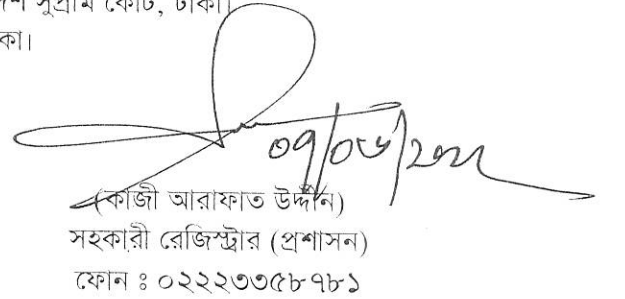 সুপ্রীম কোর্ট, ঢাকা।
কা।
০৭/০৬/২০২২
(কাজী আরাফাত উদ্দীন)
সহকারী রেজিস্ট্রার (প্রশাসন)
ফোন ঃ ০২২২৩৩৫৮৭৮১